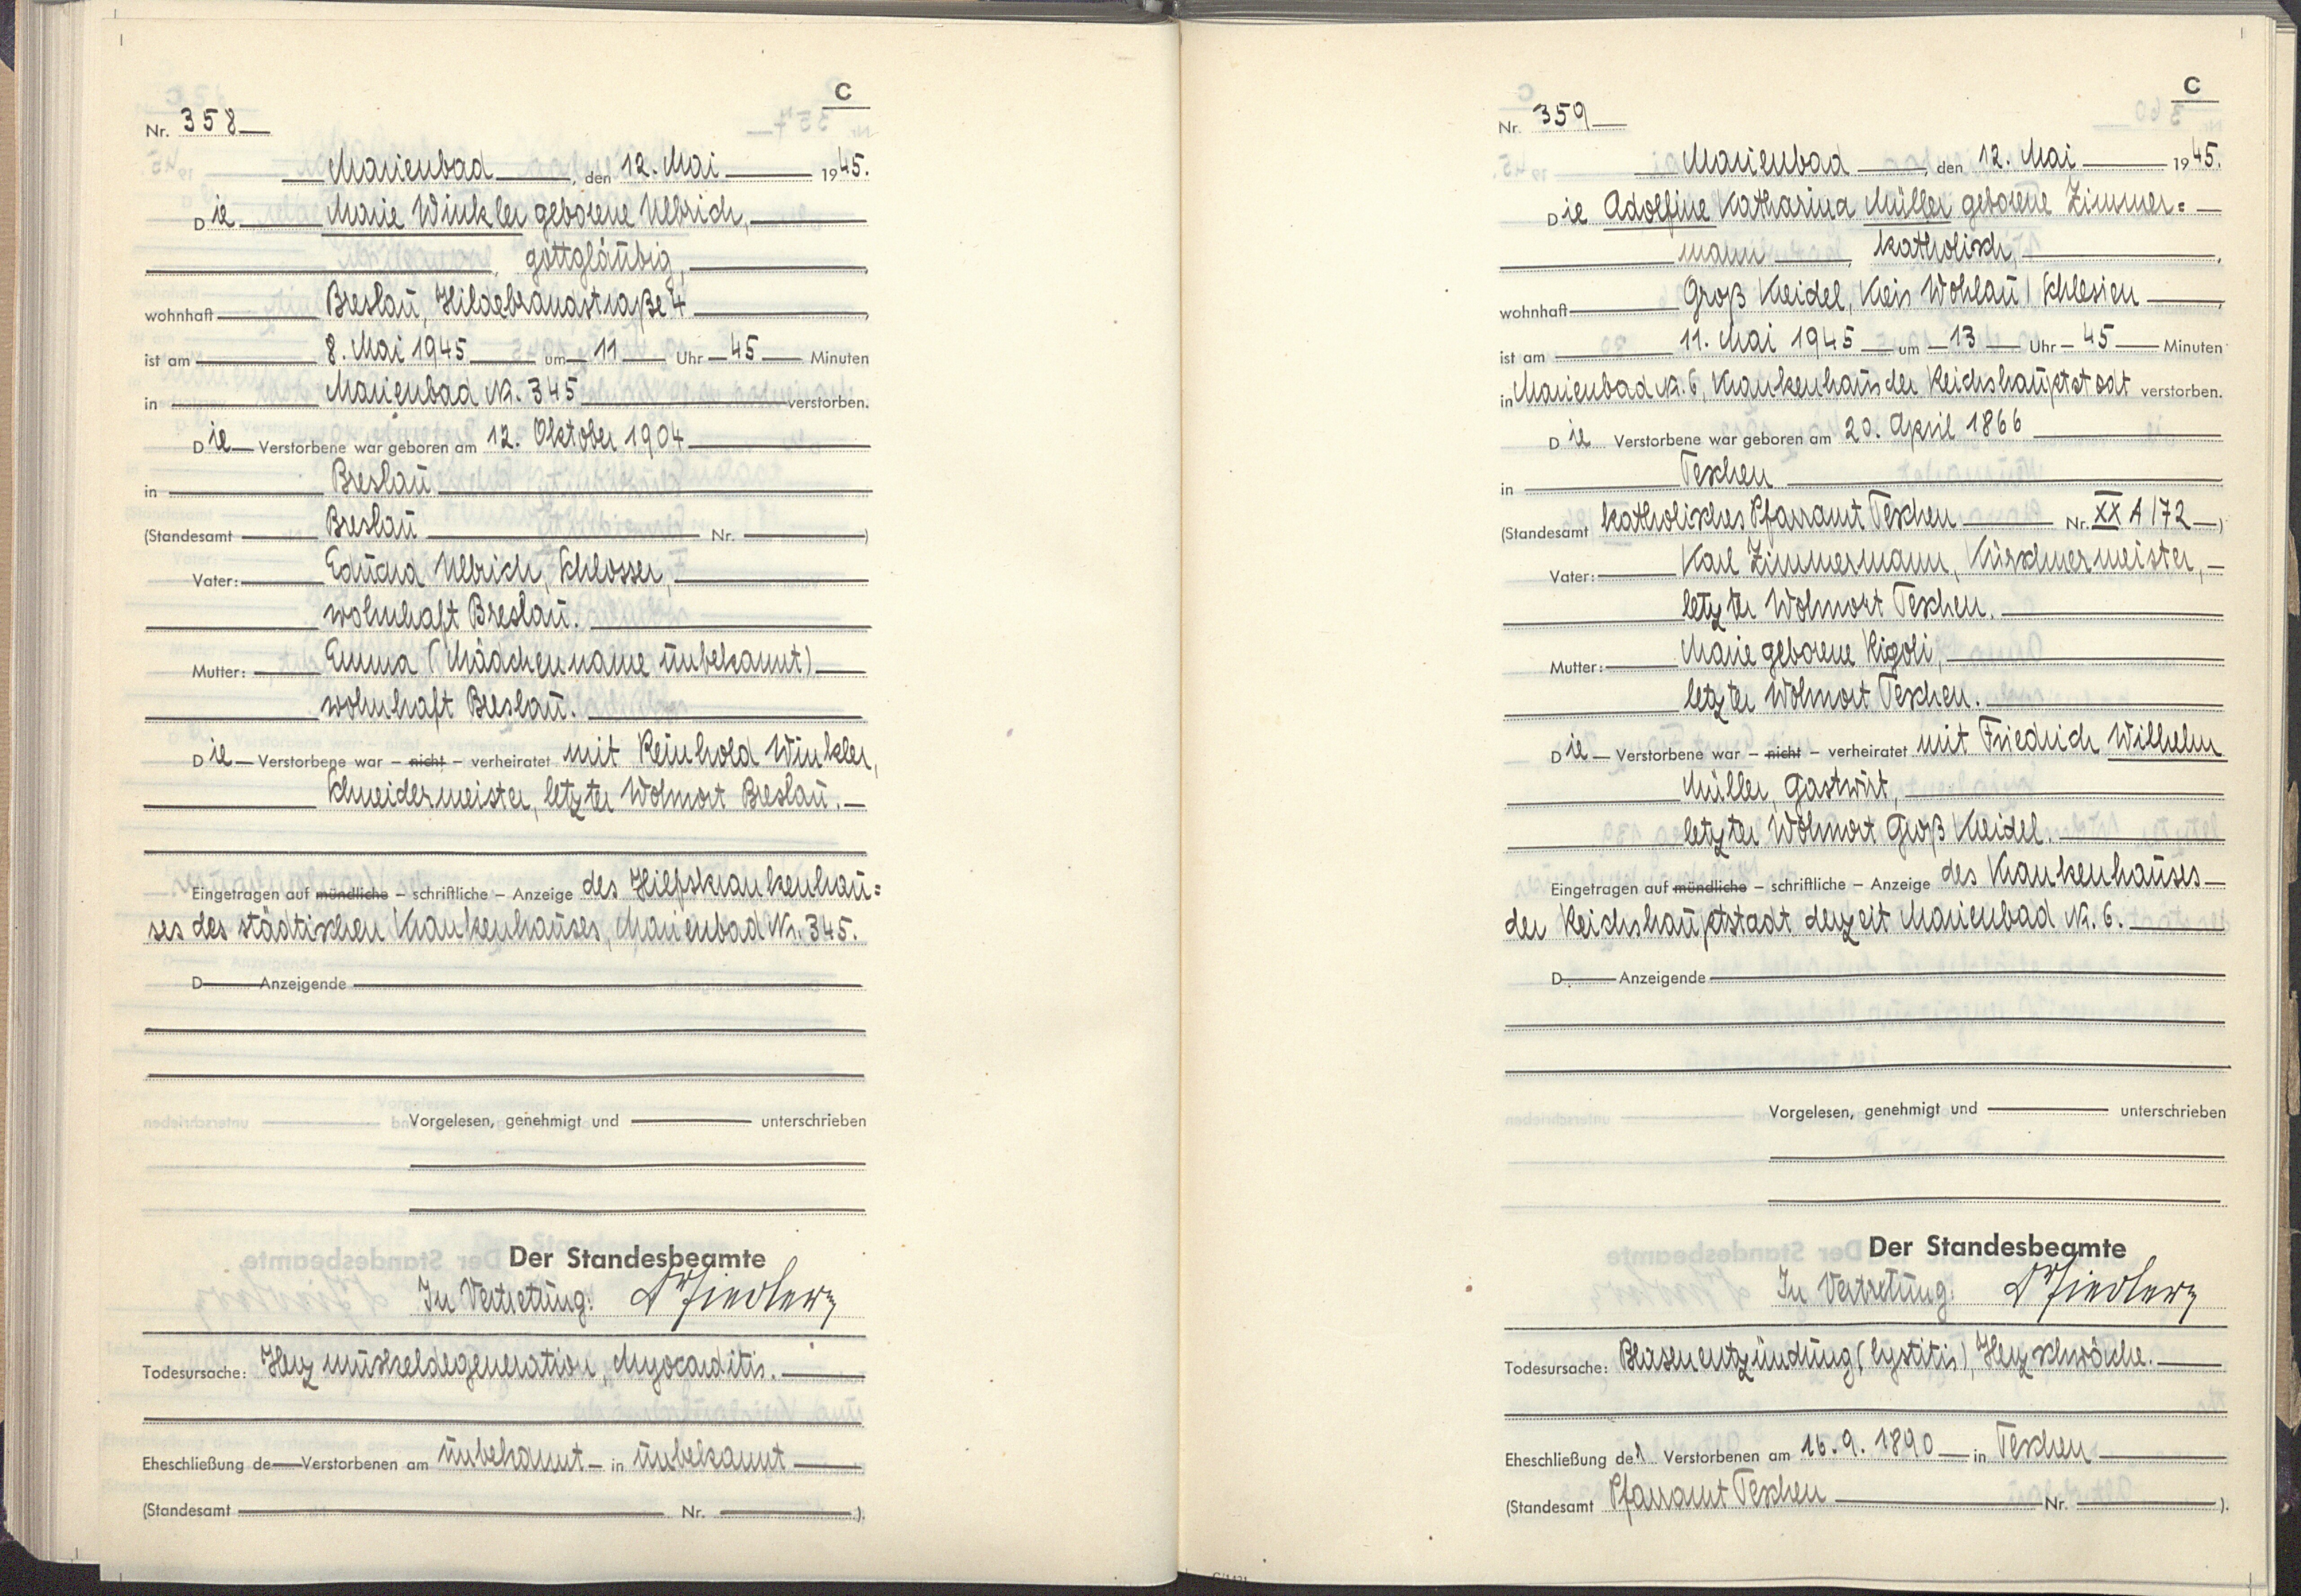 C
Nr. 358
Marienbad, den 12. Mai 1945.
Die Marie Winkler geborene Ulbrich,
gottgläubig,
wohnhaft Breslau, Hildebrandstraße 4,
ist am 8. Mai 1945 um 11 Uhr 45 Minuten
in Marienbad Nr. 345 verstorben.
Die Verstorbene war geboren am 12. Oktober 1904
in Breslau
(Standesamt Breslau Nr. )
Vater: Eduard Ulbrich, Schlosser,
wohnhaft Breslau.
Mutter: Emma (Mädchenname unbekannt)
wohnhaft Breslau.
Die Verstorbene war – nicht – verheiratet mit Reinhold Winkler,
Schneidermeister, letzter Wohnort Breslau.
Eingetragen auf mündliche – schriftliche – Anzeige des Hilfskrankenhau=
ses des städtischen Krankenhauses, Marienbad Nr. 345.
D Anzeigende
Vorgelesen, genehmigt und unterschrieben
Der Standesbeamte
In Vertretung:
Todesursache: Herzmuskeldegeneration, Myocarditis.
Eheschließung de Verstorbenen am unbekannt in unbekannt
(Standesamt Nr. ).
C
Nr. 359
Marienbad, den 12. Mai 1945.
Die Adolfine Katharina Müller geborene Zimmer=
mann, katholisch,
wohnhaft Groß Kreidel, Kreis Wohlau / Schlesien,
ist am 11. Mai 1945 um 13 Uhr 45 Minuten
in Marienbad Nr. 6, Krankenhaus der Reichshauptstadt verstorben.
Die Verstorbene war geboren am 20. April 1866
in Teschen
(Standesamt katholisches Pfarramt Teschen Nr. XX A / 72 )
Vater: Karl Zimmermann, Kürschnermeister,
letzter Wohnort Teschen.
Mutter: Marie geborene Rigoli,
letzter Wohnort Teschen.
Die Verstorbene war – nicht – verheiratet mit Friedrich Wilhelm
Müller, Gastwirt,
letzter Wohnort Groß Kreidel.
Eingetragen auf mündliche – schriftliche – Anzeige des Krankenhauses
der Reichshauptstadt derzeit Marienbad Nr. 6.
D. Anzeigende
Vorgelesen, genehmigt und unterschrieben
Der Standesbeamte
In Vertretung:
Todesursache: Blasenentzündung (Cystitis), Herzschwäche.
Eheschließung der Verstorbenen am 16.9.1890 in Teschen
(Standesamt Pfarramt Teschen Nr. ).